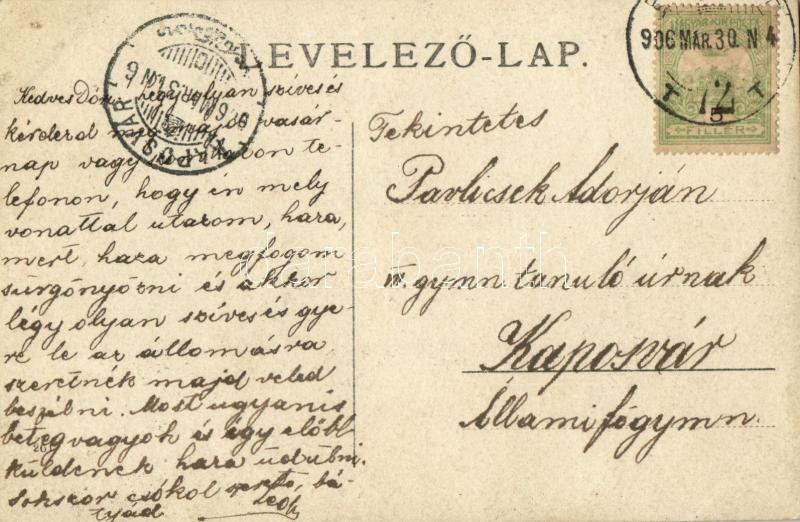 LEVELEZŐ-LAP.
906 MÁR. 30. N 4
72
FILLÉR
KAPOSVÁR
Kedves légy olyan szíves és
kérdezd meg vasár-
nap vagy te-
lefonon, hogy én mely
vonattal utazom, haza,
mert haza megfogom
sürgönyözni és akkor
légy olyan szíves és gye-
re le az állomásra
szeretnék majd veled
beszélni. Most ugyanis
beteg vagyok és így előbb
küldenek haza üdülni.
Sokszor csókol szerető, bá-
tyád
Tekintetes
Pavlicsek Adorján
gymn tanuló úrnak
Kaposvár
Állami főgymn.
darabanth